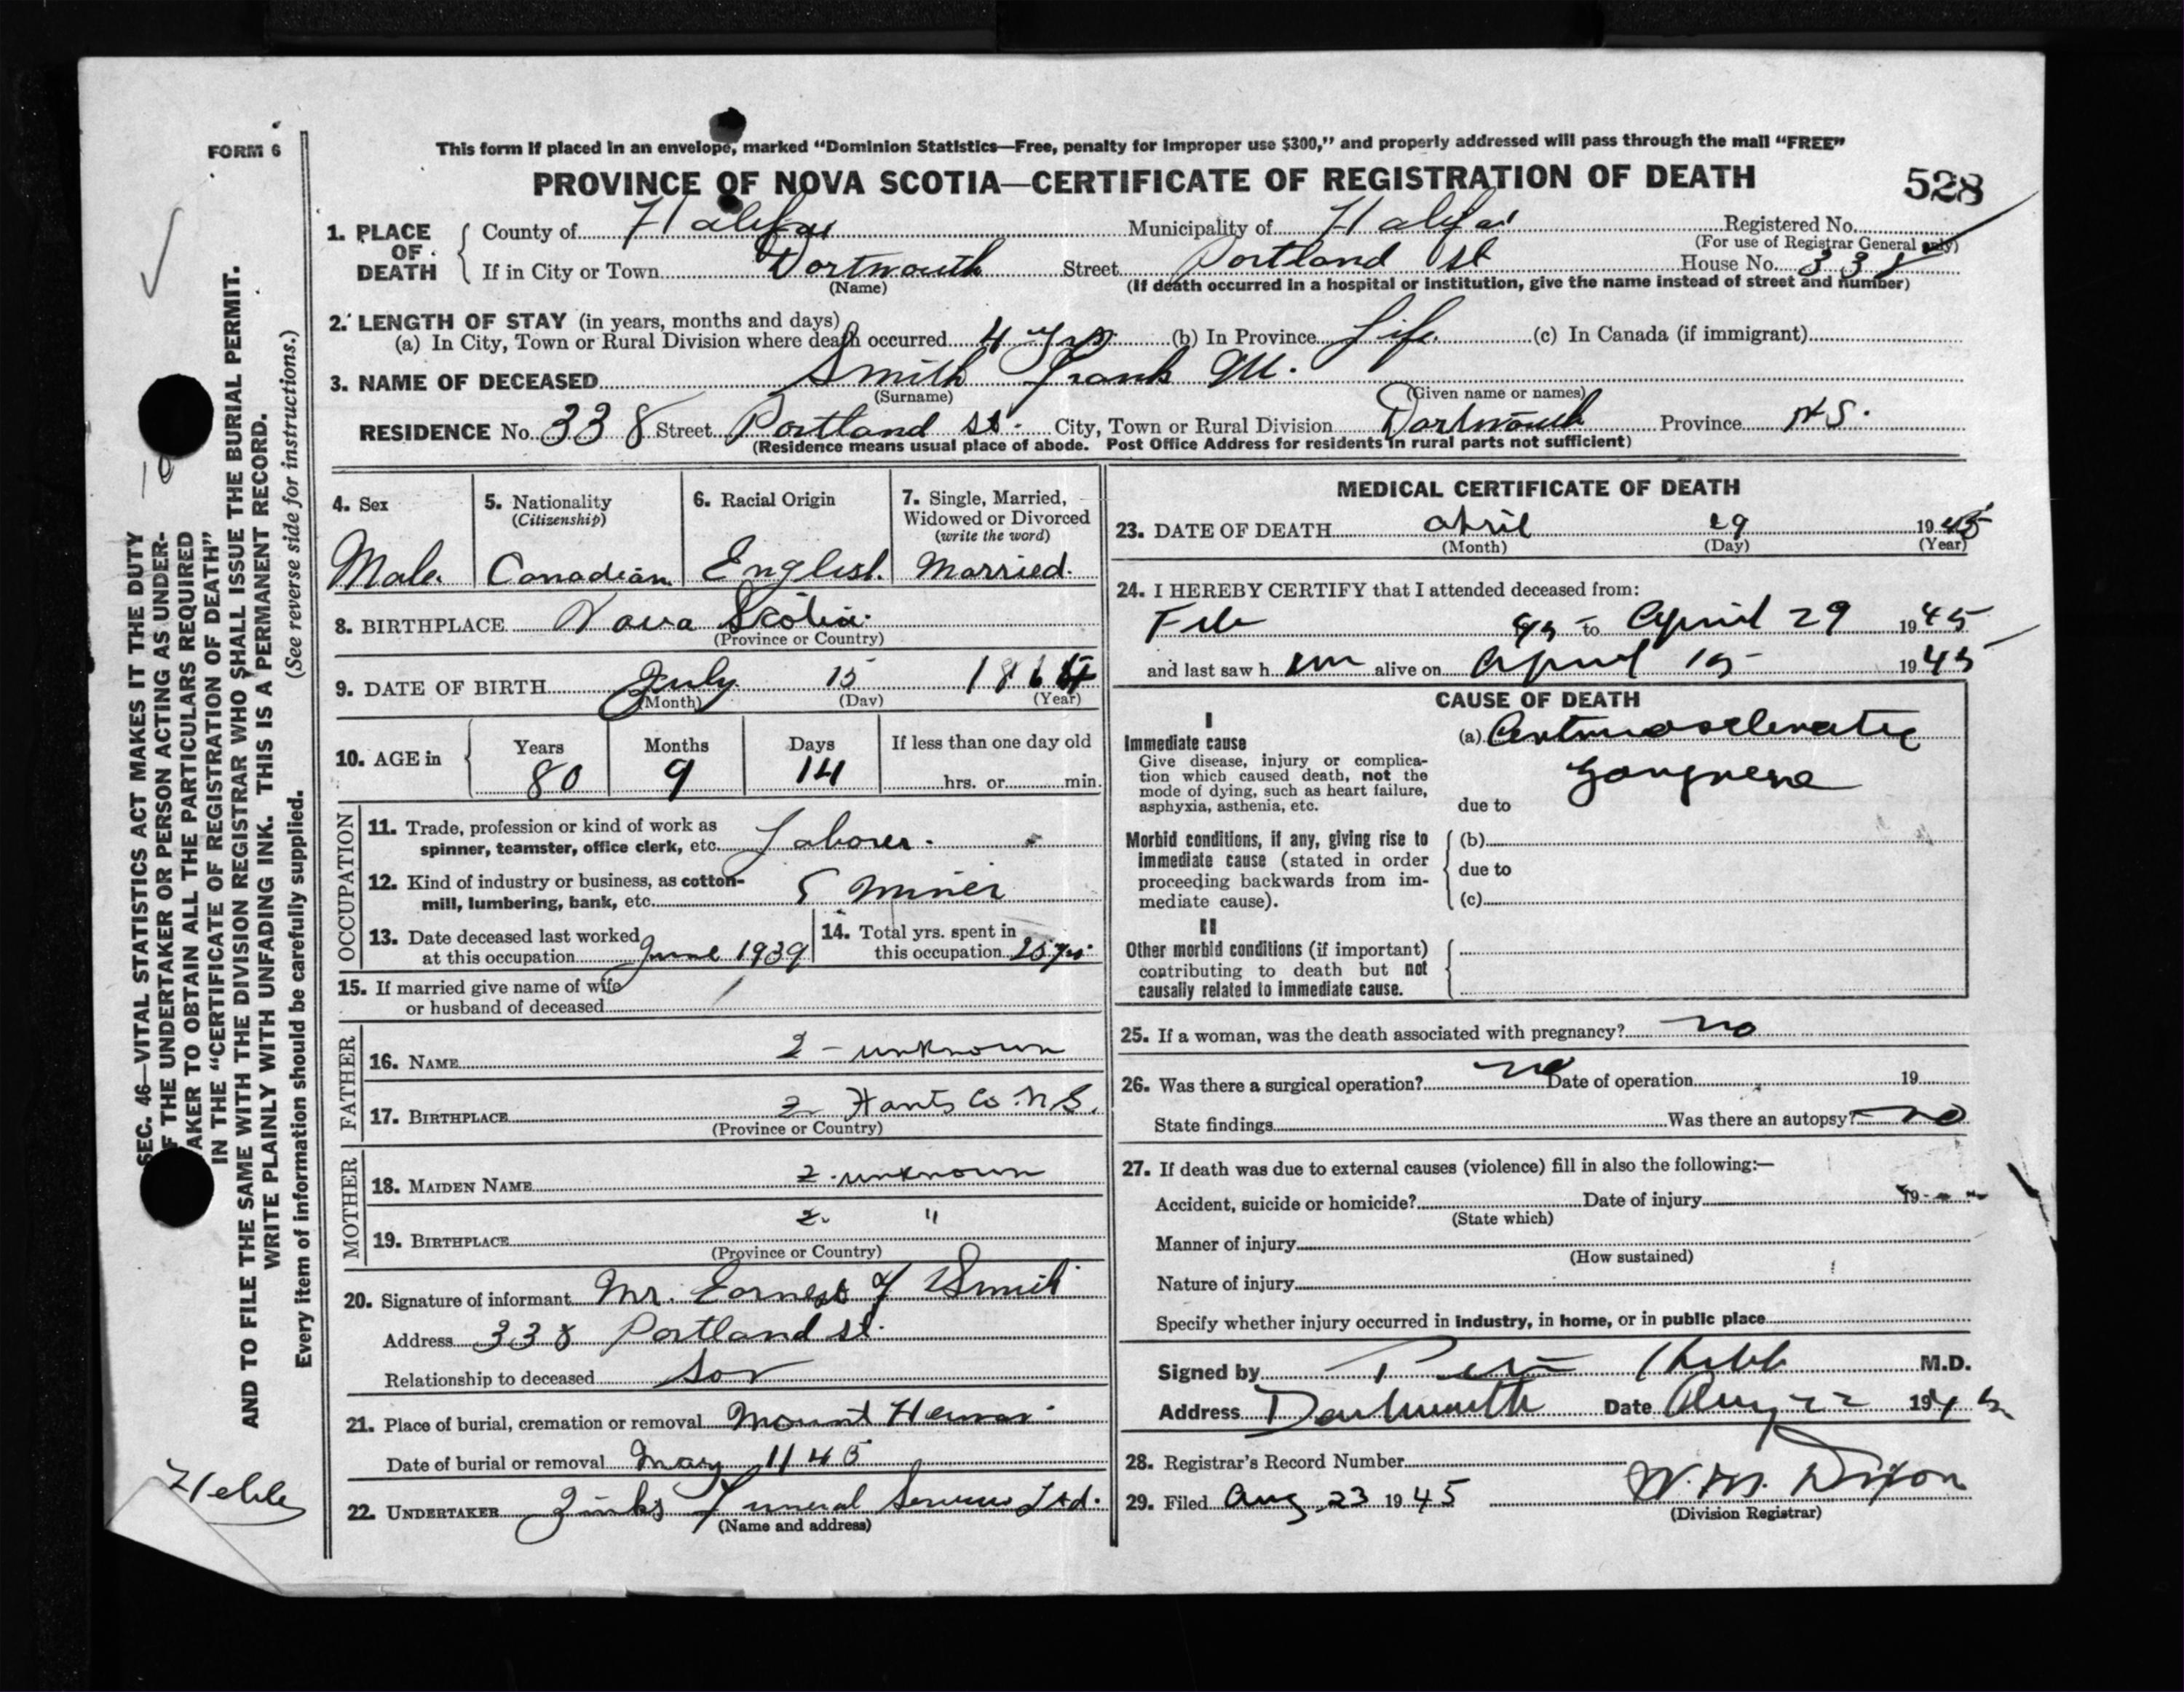 FORM 6
This form if placed in an envelope, marked "Dominion Statistics—Free, penalty for improper use $300," and properly addressed will pass through the mail "FREE"
PROVINCE OF NOVA SCOTIA—CERTIFICATE OF REGISTRATION OF DEATH
528
1. PLACE OF DEATH
County of Halifax Municipality of Halifax Registered No.
(For use of Registrar General only)
If in City or Town Dartmouth Street Portland St House No. 338
(Name) (If death occurred in a hospital or institution, give the name instead of street and number)
2. LENGTH OF STAY (in years, months and days)
(a) In City, Town or Rural Division where death occurred 4 yrs. (b) In Province Life. (c) In Canada (if immigrant)
3. NAME OF DECEASED Smith Frank M.
(Surname) (Given name or names)
RESIDENCE No. 338 Street Portland St. City, Town or Rural Division Dartmouth Province N.S.
(Residence means usual place of abode. Post Office Address for residents in rural parts not sufficient)
4. Sex
Male.
5. Nationality
(Citizenship)
Canadian
6. Racial Origin
English.
7. Single, Married,
Widowed or Divorced
(write the word)
Married.
8. BIRTHPLACE Nova Scotia.
(Province or Country)
9. DATE OF BIRTH July 15 1864
(Month) (Day) (Year)
10. AGE in
Years 80
Months 9
Days 14
If less than one day old
hrs. or min.
OCCUPATION
11. Trade, profession or kind of work as
spinner, teamster, office clerk, etc. Laborer.
12. Kind of industry or business, as cotton-
mill, lumbering, bank, etc. Miner
13. Date deceased last worked
at this occupation June 1939
14. Total yrs. spent in
this occupation 25 yrs.
15. If married give name of wife
or husband of deceased
FATHER
16. NAME 2 - unknown
17. BIRTHPLACE 2 Hants Co. N.S.
(Province or Country)
MOTHER
18. MAIDEN NAME 2. unknown
19. BIRTHPLACE 2. "
(Province or Country)
20. Signature of informant Mr. Earnest Smith
Address 338 Portland St.
Relationship to deceased Son
21. Place of burial, cremation or removal Mount Herman
Date of burial or removal May 1 1 45
22. UNDERTAKER Zinks Funeral Service Ltd.
(Name and address)
MEDICAL CERTIFICATE OF DEATH
23. DATE OF DEATH April 29 1945
(Month) (Day) (Year)
24. I HEREBY CERTIFY that I attended deceased from:
Feb 45 to April 29 1945
and last saw h im alive on April 15 1945
CAUSE OF DEATH
I
Immediate cause
Give disease, injury or complica-
tion which caused death, not the
mode of dying, such as heart failure,
asphyxia, asthenia, etc.
(a) Arteriosclerotic
gangrene
due to
Morbid conditions, if any, giving rise to
immediate cause (stated in order
proceeding backwards from im-
mediate cause).
(b)
due to
(c)
II
Other morbid conditions (if important)
contributing to death but not
causally related to immediate cause.
25. If a woman, was the death associated with pregnancy? no
26. Was there a surgical operation? no Date of operation 19
State findings Was there an autopsy? no
27. If death was due to external causes (violence) fill in also the following:—
Accident, suicide or homicide? Date of injury 19
(State which)
Manner of injury
(How sustained)
Nature of injury
Specify whether injury occurred in industry, in home, or in public place
Signed by M.D.
Address Dartmouth Date Aug 22 194
28. Registrar's Record Number
29. Filed Aug 23 1945 W. M. Dixon
(Division Registrar)
SEC. 46—VITAL STATISTICS ACT MAKES IT THE DUTY
F THE UNDERTAKER OR PERSON ACTING AS UNDER-
AKER TO OBTAIN ALL THE PARTICULARS REQUIRED
IN THE "CERTIFICATE OF REGISTRATION OF DEATH"
AND TO FILE THE SAME WITH THE DIVISION REGISTRAR WHO SHALL ISSUE THE BURIAL PERMIT.
WRITE PLAINLY WITH UNFADING INK. THIS IS A PERMANENT RECORD.
Every item of information should be carefully supplied. (See reverse side for instructions.)